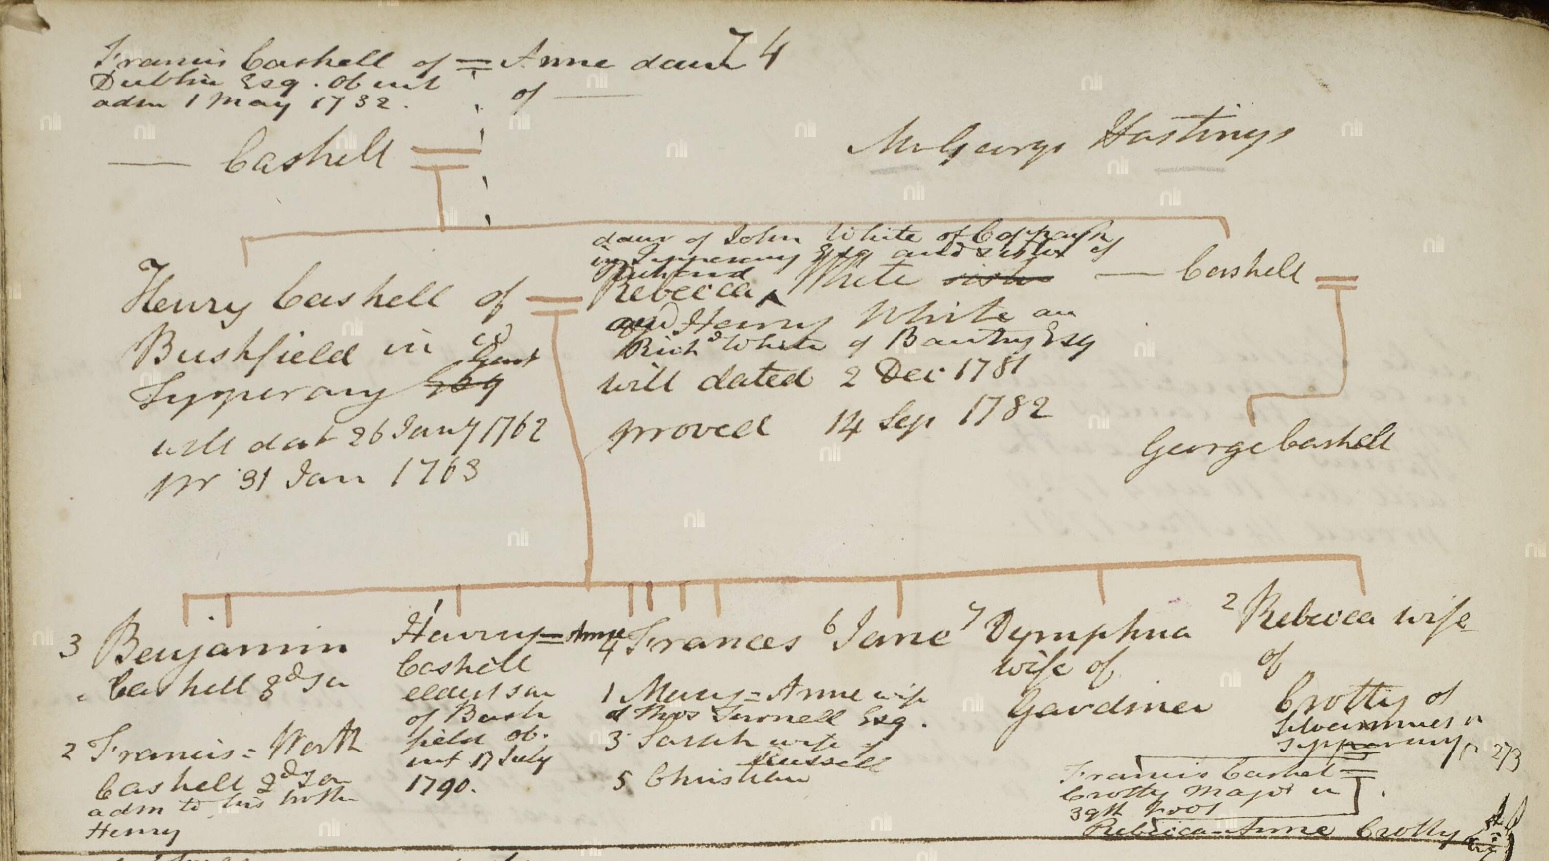 Francis Cashell of = Anne daur
Dublin Esq. Ob int
adm 1 May 1732.
of —
74
— Cashell =
Mr George Hastings
Henry Cashell of =
Bushfield in co
Tipperary Esq Gent
will dat 26 Jany 1762
pr 31 Jan 1763
daur of John White of Cappagh
in Tipperary Esq and sister of
Richard
Rebecca White sister
and Henry White an
Richd White of Bantry Esq
will dated 2 Dec 1781
proved 14 Sep 1782
— Cashell =
George Cashell
3 Benjamin
Cashell 3d son
2 Francis = Worth
Cashell 2d son
adm to his brother
Henry
Henry = Anne
Cashell
eldest son
of Bush
field ob.
int 17 July
1790.
4 Frances
1 Mary = Anne wife
of Thos Esq.
3 Sarah wife of
Russell
5 Christian
6 Jane
7 Dymphna
wife of
Gardiner
2 Rebecca wife
of
Crotty of
Silvermines in
Tipperary
273
Francis Cashel =
Crotty Major in
39th Foot
Rebecca = Anne Crotty